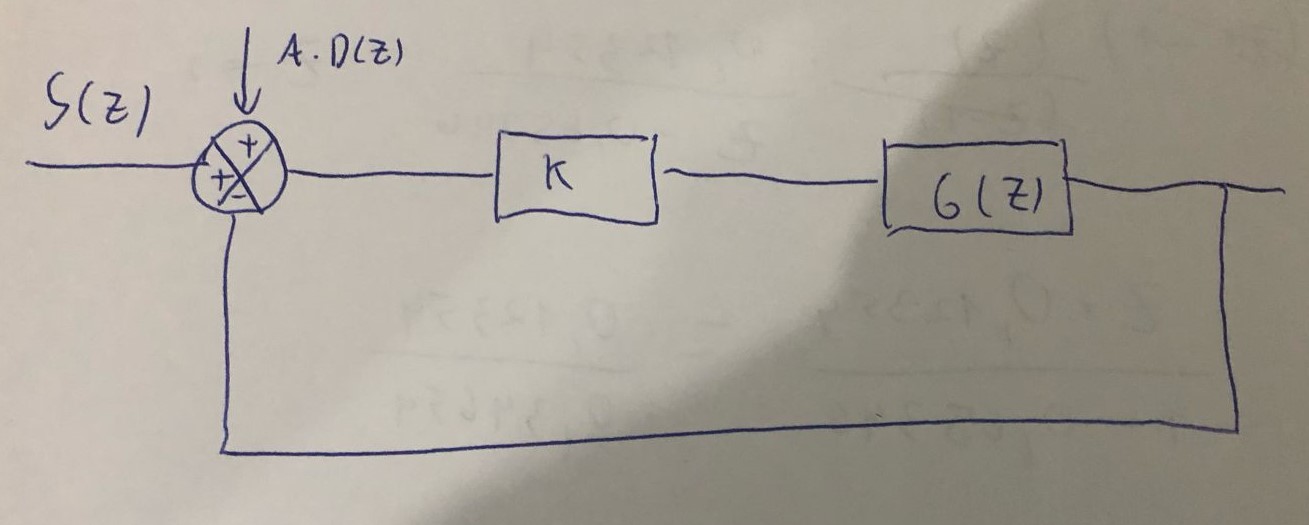 A.D(Z)
S(Z)
+
+
-
K
G(Z)